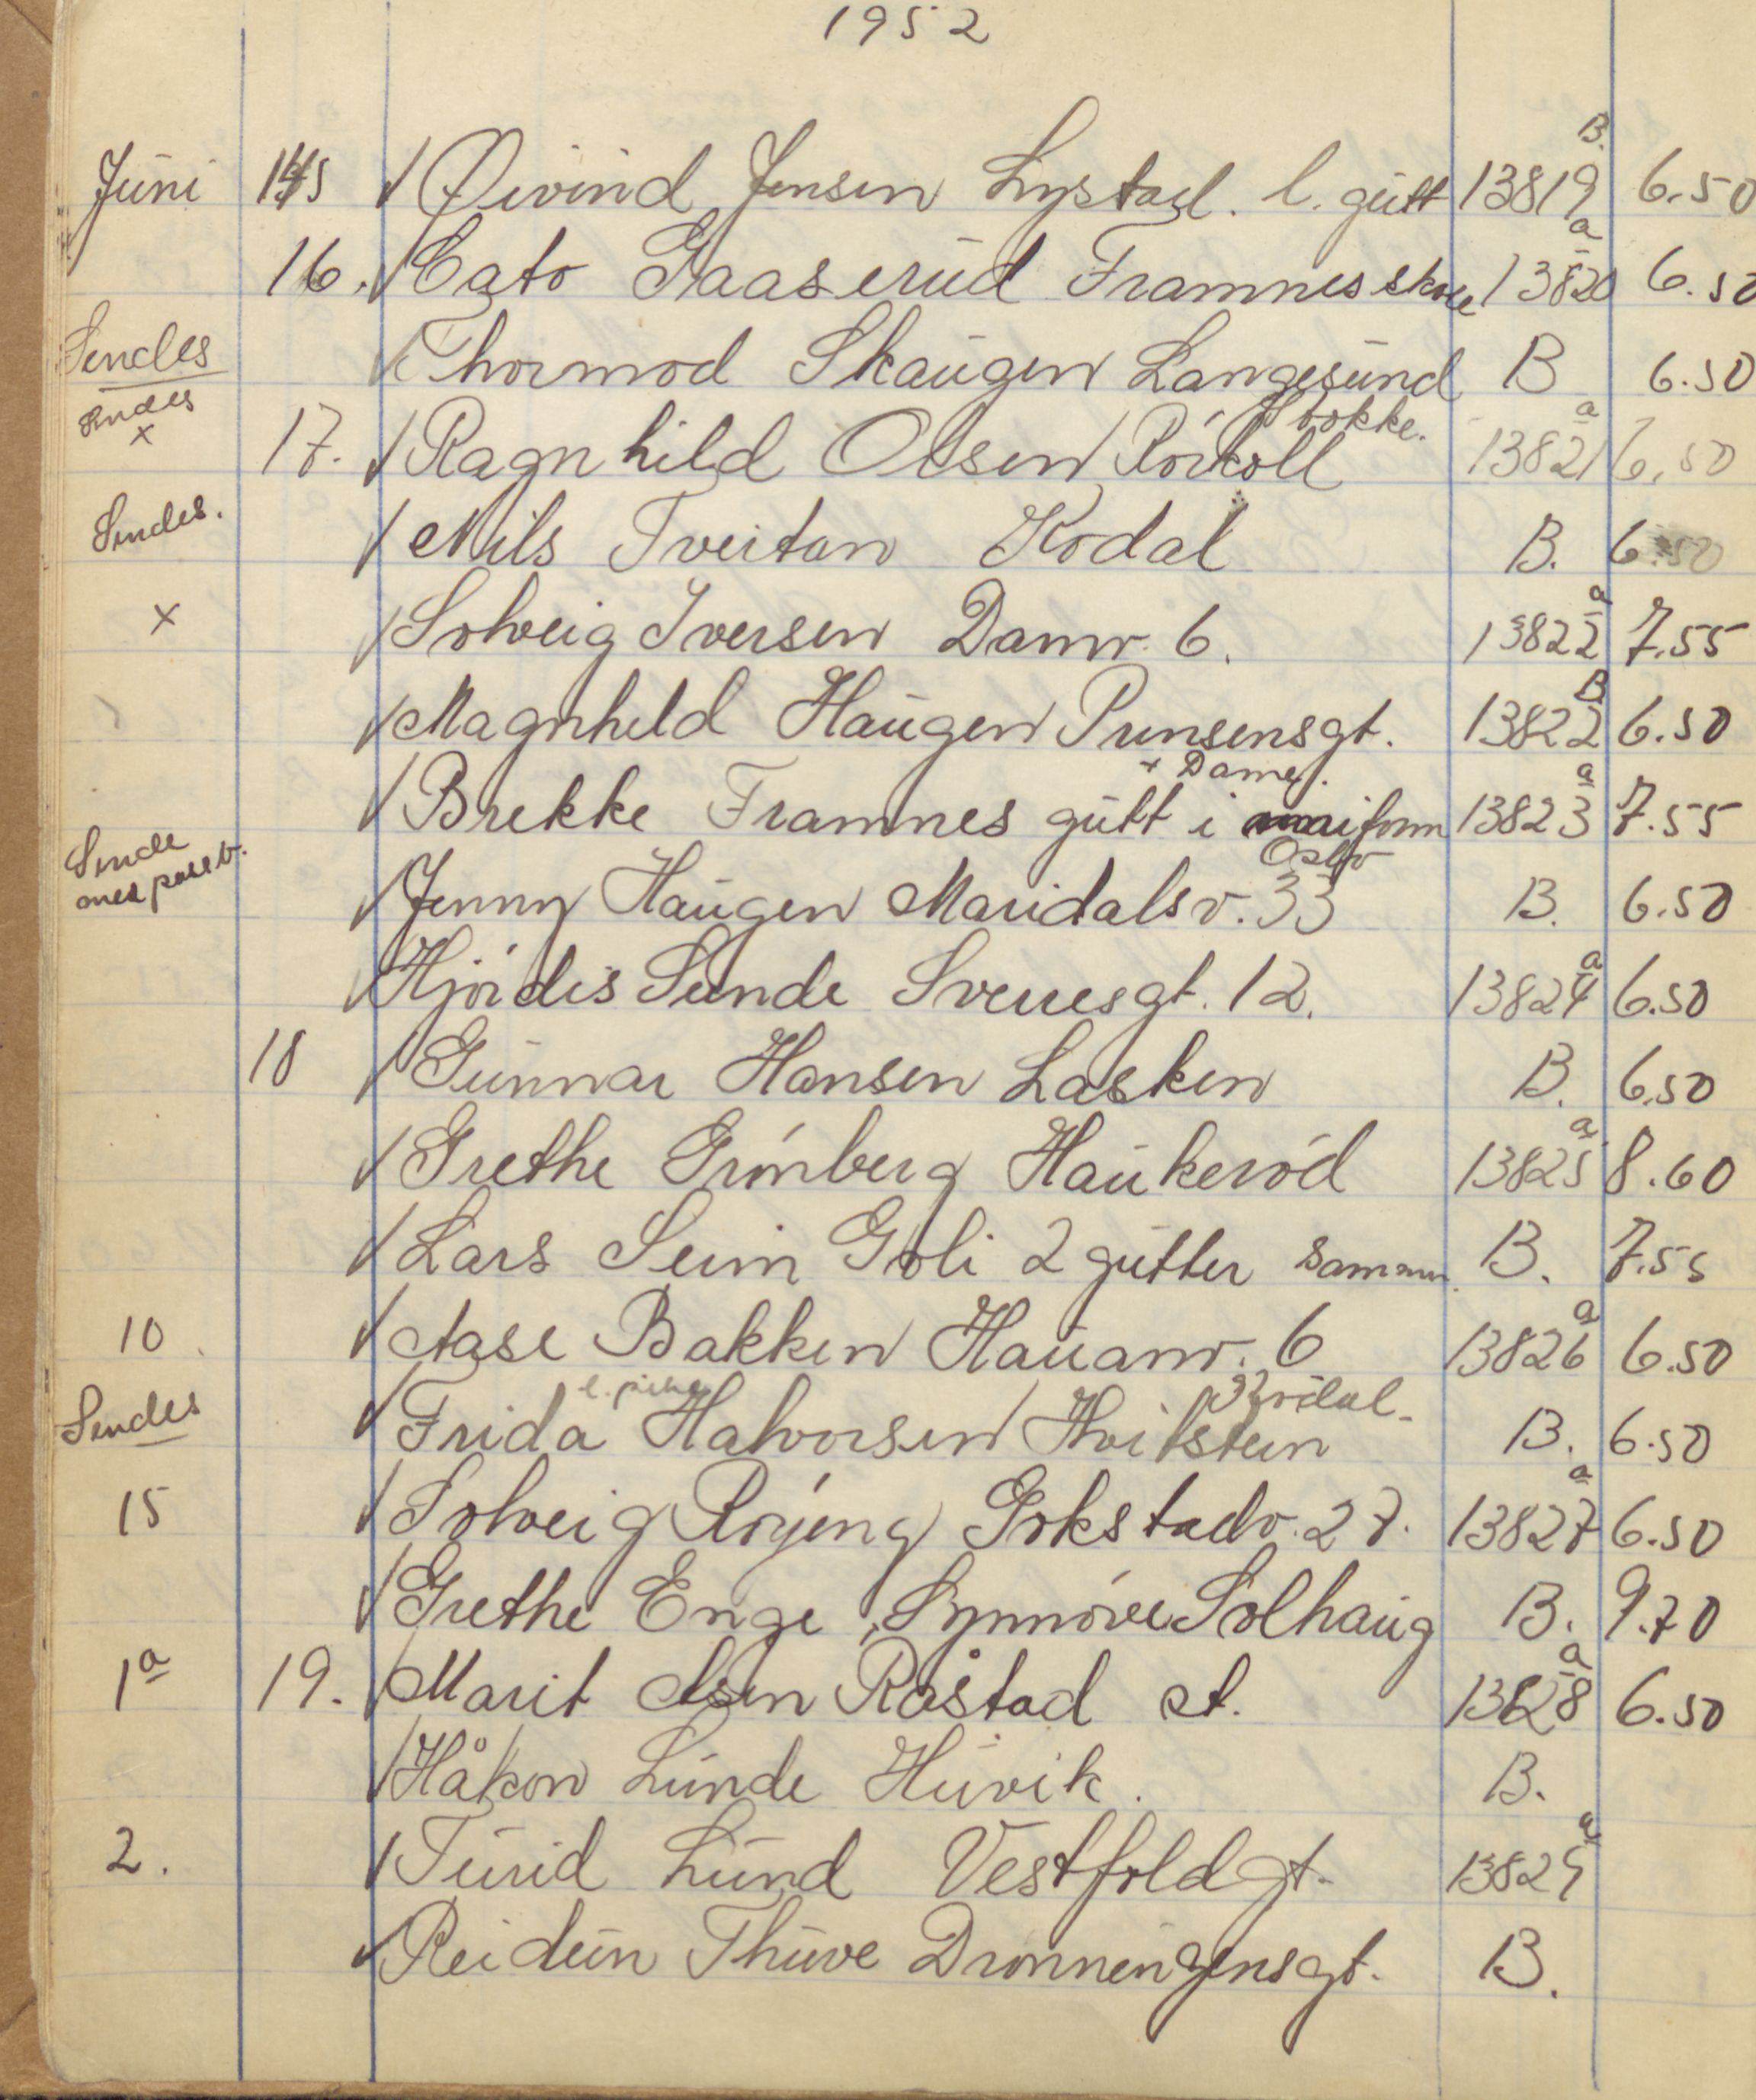 1952
Juni 145 √ Øivind Jensen Lystad. l. gutt 13819 B. 6.50
16. √ Cato Gaaserud Framnes skole 13820 a 6.50
Sendes √ Thormod Skaugen Langesund B 6.50
Sendes x 17. √ Ragnhild Olsen Rörkoll 13821 a 6.50
Sendes. √ Nils Tveitan Kodal B. 6.50
x √ Solveig Iversen Damv. 6. 13822 a 7.55
√ Magnhild Haugen Prinsensgt. 13822 B 6.50
√ Brekke Framnes gutt i uniform + Dame. 13823 a 7.55
Sende √ Jenny Haugen Maridalsv. 33 Oslo B. 6.50
√ Hjördis Sunde Sverresgt. 12. 13824 a 6.50
18 √ Gunnar Hansen Lasken B. 6.50
√ Grethe Grönberg Haukeröd 13825 a 8.60
√ Lars Seim Goli 2 gutter sammen B. 7.55
10 √ Aase Bakken Hauanv. 6 13826 a 6.50
Sendes √ Frida Halvorsen Hvitstein l. pike B. 6.50
15 √ Solveig Röyeng Gokstadv. 27. 13827 a 6.50
√ Grethe Enge, Synnöve Solhaug B. 9.70
1 a 19. √ Marit Olsen Råstad st. 13828 a 6.50
√ Håkon Lunde Huvik. B.
2. √ Turid Lund Vestfoldgt. 13829 a
√ Reidun Thuve Dronningensgt. B.